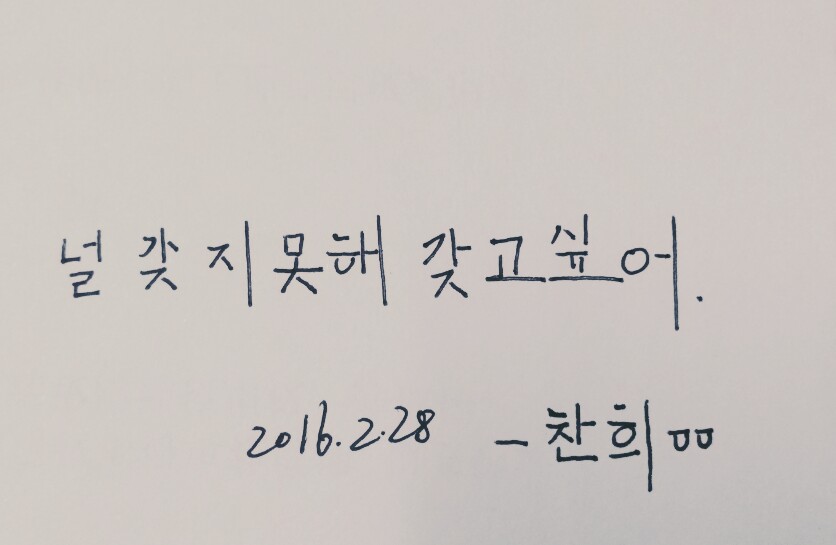 널 갖지못해 갖고싶어.
2016.2.28 - 찬희ㅁㅁ